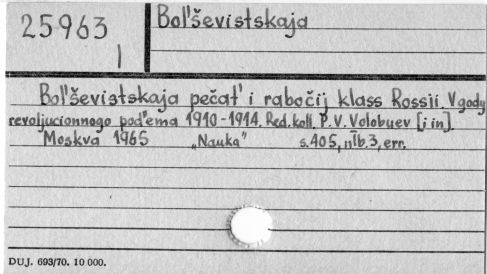 25963
1
Bol'ševistskaja
Bol'ševistskaja pečat' i rabočij klass Rossii. V gody
revoljucionnogo pod"ema 1910-1914. Red. koll. P. V. Volobuev [i in].
Moskva 1965 „Nauka" s. 405, nlb. 3, err.
DUJ. 693/70. 10 000.